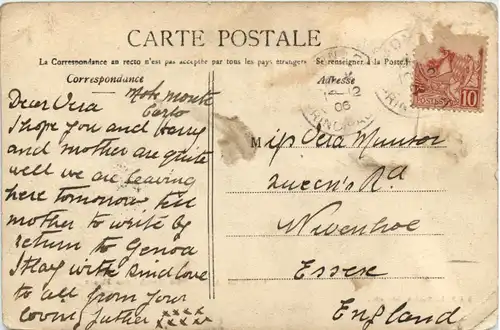 CARTE POSTALE
La Correspondance au recto n'est pas acceptée par tous les pays étrangers Se renseigner à la Poste
Correspondance
Adresse
Hote Monte
Carlo
Dear Vera
I hope you and Harry
and mother are quite
well we are leaving
here tomorrow tell
mother to write by
return to Genoa
I stay with
love
to all from your
loving father xxxx
xxxx
M
iss Vera Munsor
Queen's Rd
Wivenhoe
Essex
England
POSTES
10
12
06